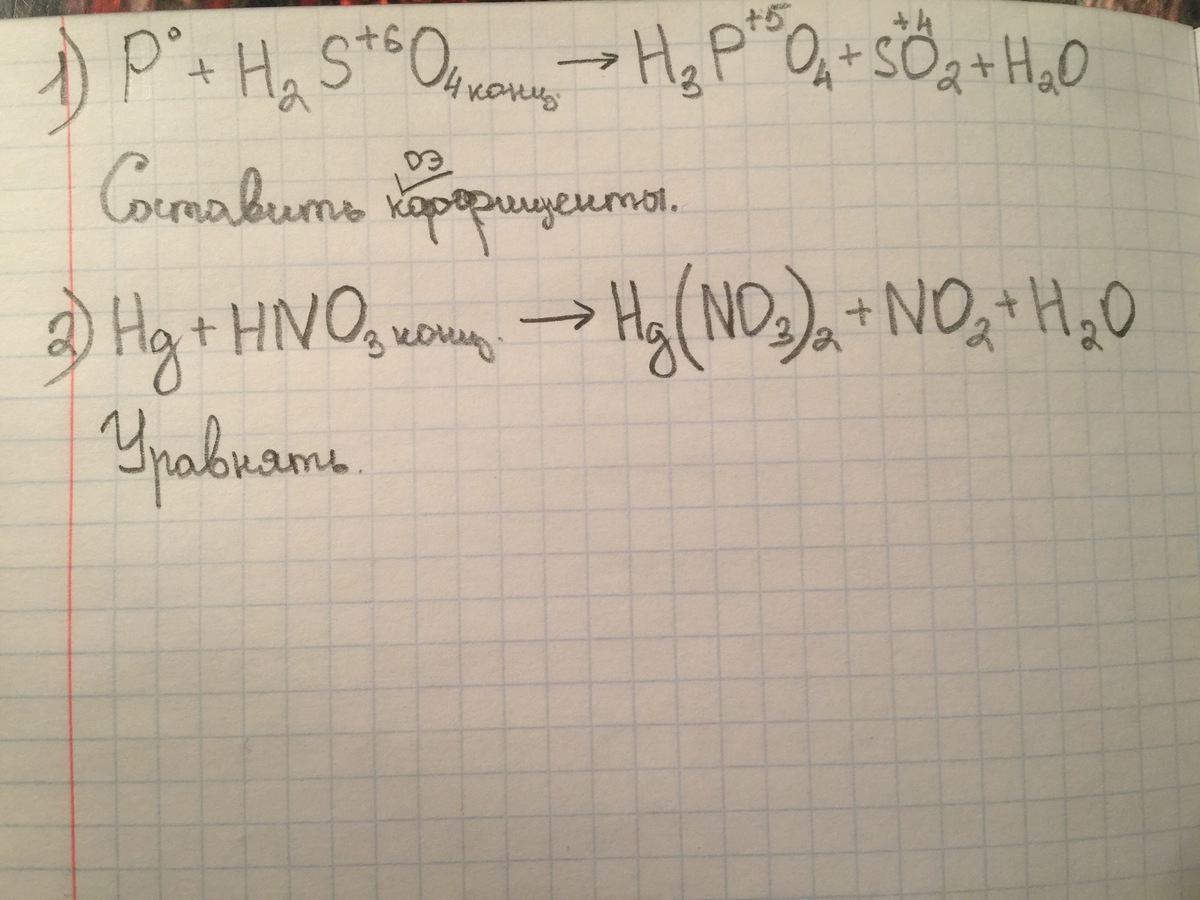 1) P⁰ + H₂S⁺⁶O₄ конц. → H₃P⁺⁵O₄ + S⁺⁴O₂ + H₂O
ОЭ
Составить коэффициенты.
2) Hg + HNO₃ конц. → Hg(NO₃)₂ + NO₂ + H₂O
Уравнять.